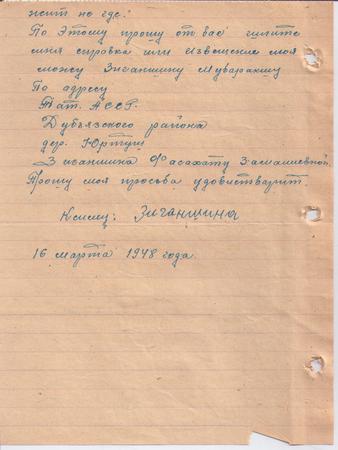 жит не где.
По Этому прошу от вас
мня справка или Извещение моя
можу Зиганшину Муваракшу
По адресу
Тат. АССР.
Дубъязского района
дер. Юртуш
Зиганшина Фасахату
Прошу моя просьба удовистварит.
К сим: Зиганшина
16 марта 1948 года.